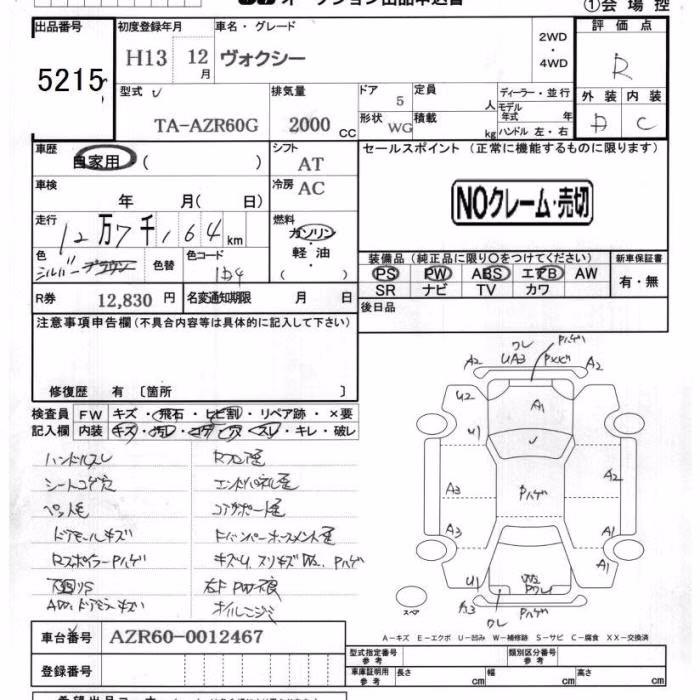 オークション出品申込書
①会場控
出品番号
5215
初度登録年月
H13 12月
車名・グレード
ヴォクシー
2WD
・
4WD
評価点
R
外装 内装
D C
型式
TA-AZR60G
排気量
2000 CC
ドア 5
定員 人
形状 WG
積載 kg
ディーラー・並行
モデル年式 年
ハンドル 左・右
車歴
自家用 ( )
シフト
AT
車検
年 月( 日)
冷房 AC
走行
12万7千,164 km
燃料
ガソリン
・
軽油
( )
色
シルバー
色替
色コード
1D4
R券 12,830 円
名変通知期限 月 日
セールスポイント (正常に機能するものに限ります)
NOクレーム・売切
装備品 (純正品に限り○をつけてください)
PS PW ABS エアB AW
SR ナビ TV カワ
新車保証書
有・無
後日品
注意事項申告欄(不具合内容等は具体的に記入して下さい)
修復歴 有 〔箇所 〕
検査員記入欄
FW キズ・飛石・ヒビ割・リペア跡・×要
内装 キズ・汚レ・コゲ・穴・スレ・キレ・破レ
ハンドルスレ
シートコゲ穴
ペット毛
ドアモールキズ
RスポイラーPハゲ
下廻りS
Rフロア歪
エンドパネル歪
コアサポート歪
キズU、スリキズW2、Pハゲ
右F PW不良
オイルニジミ
A2 UA3 A2
クレ Pハゲ
U2 A1
U1
A3 A2
Pハゲ
A3 A1
U1 A1
W2
Pクレ
A3 クレ Pハゲ
スペア
A−キズ E−エクボ U−凹み W−補修跡 S−サビ C−腐食 XX−交換済
車台番号 AZR60-0012467
登録番号
型式指定番号 参考
類別区分番号 参考
車庫証明用 参考
長さ cm 幅 cm 高さ cm